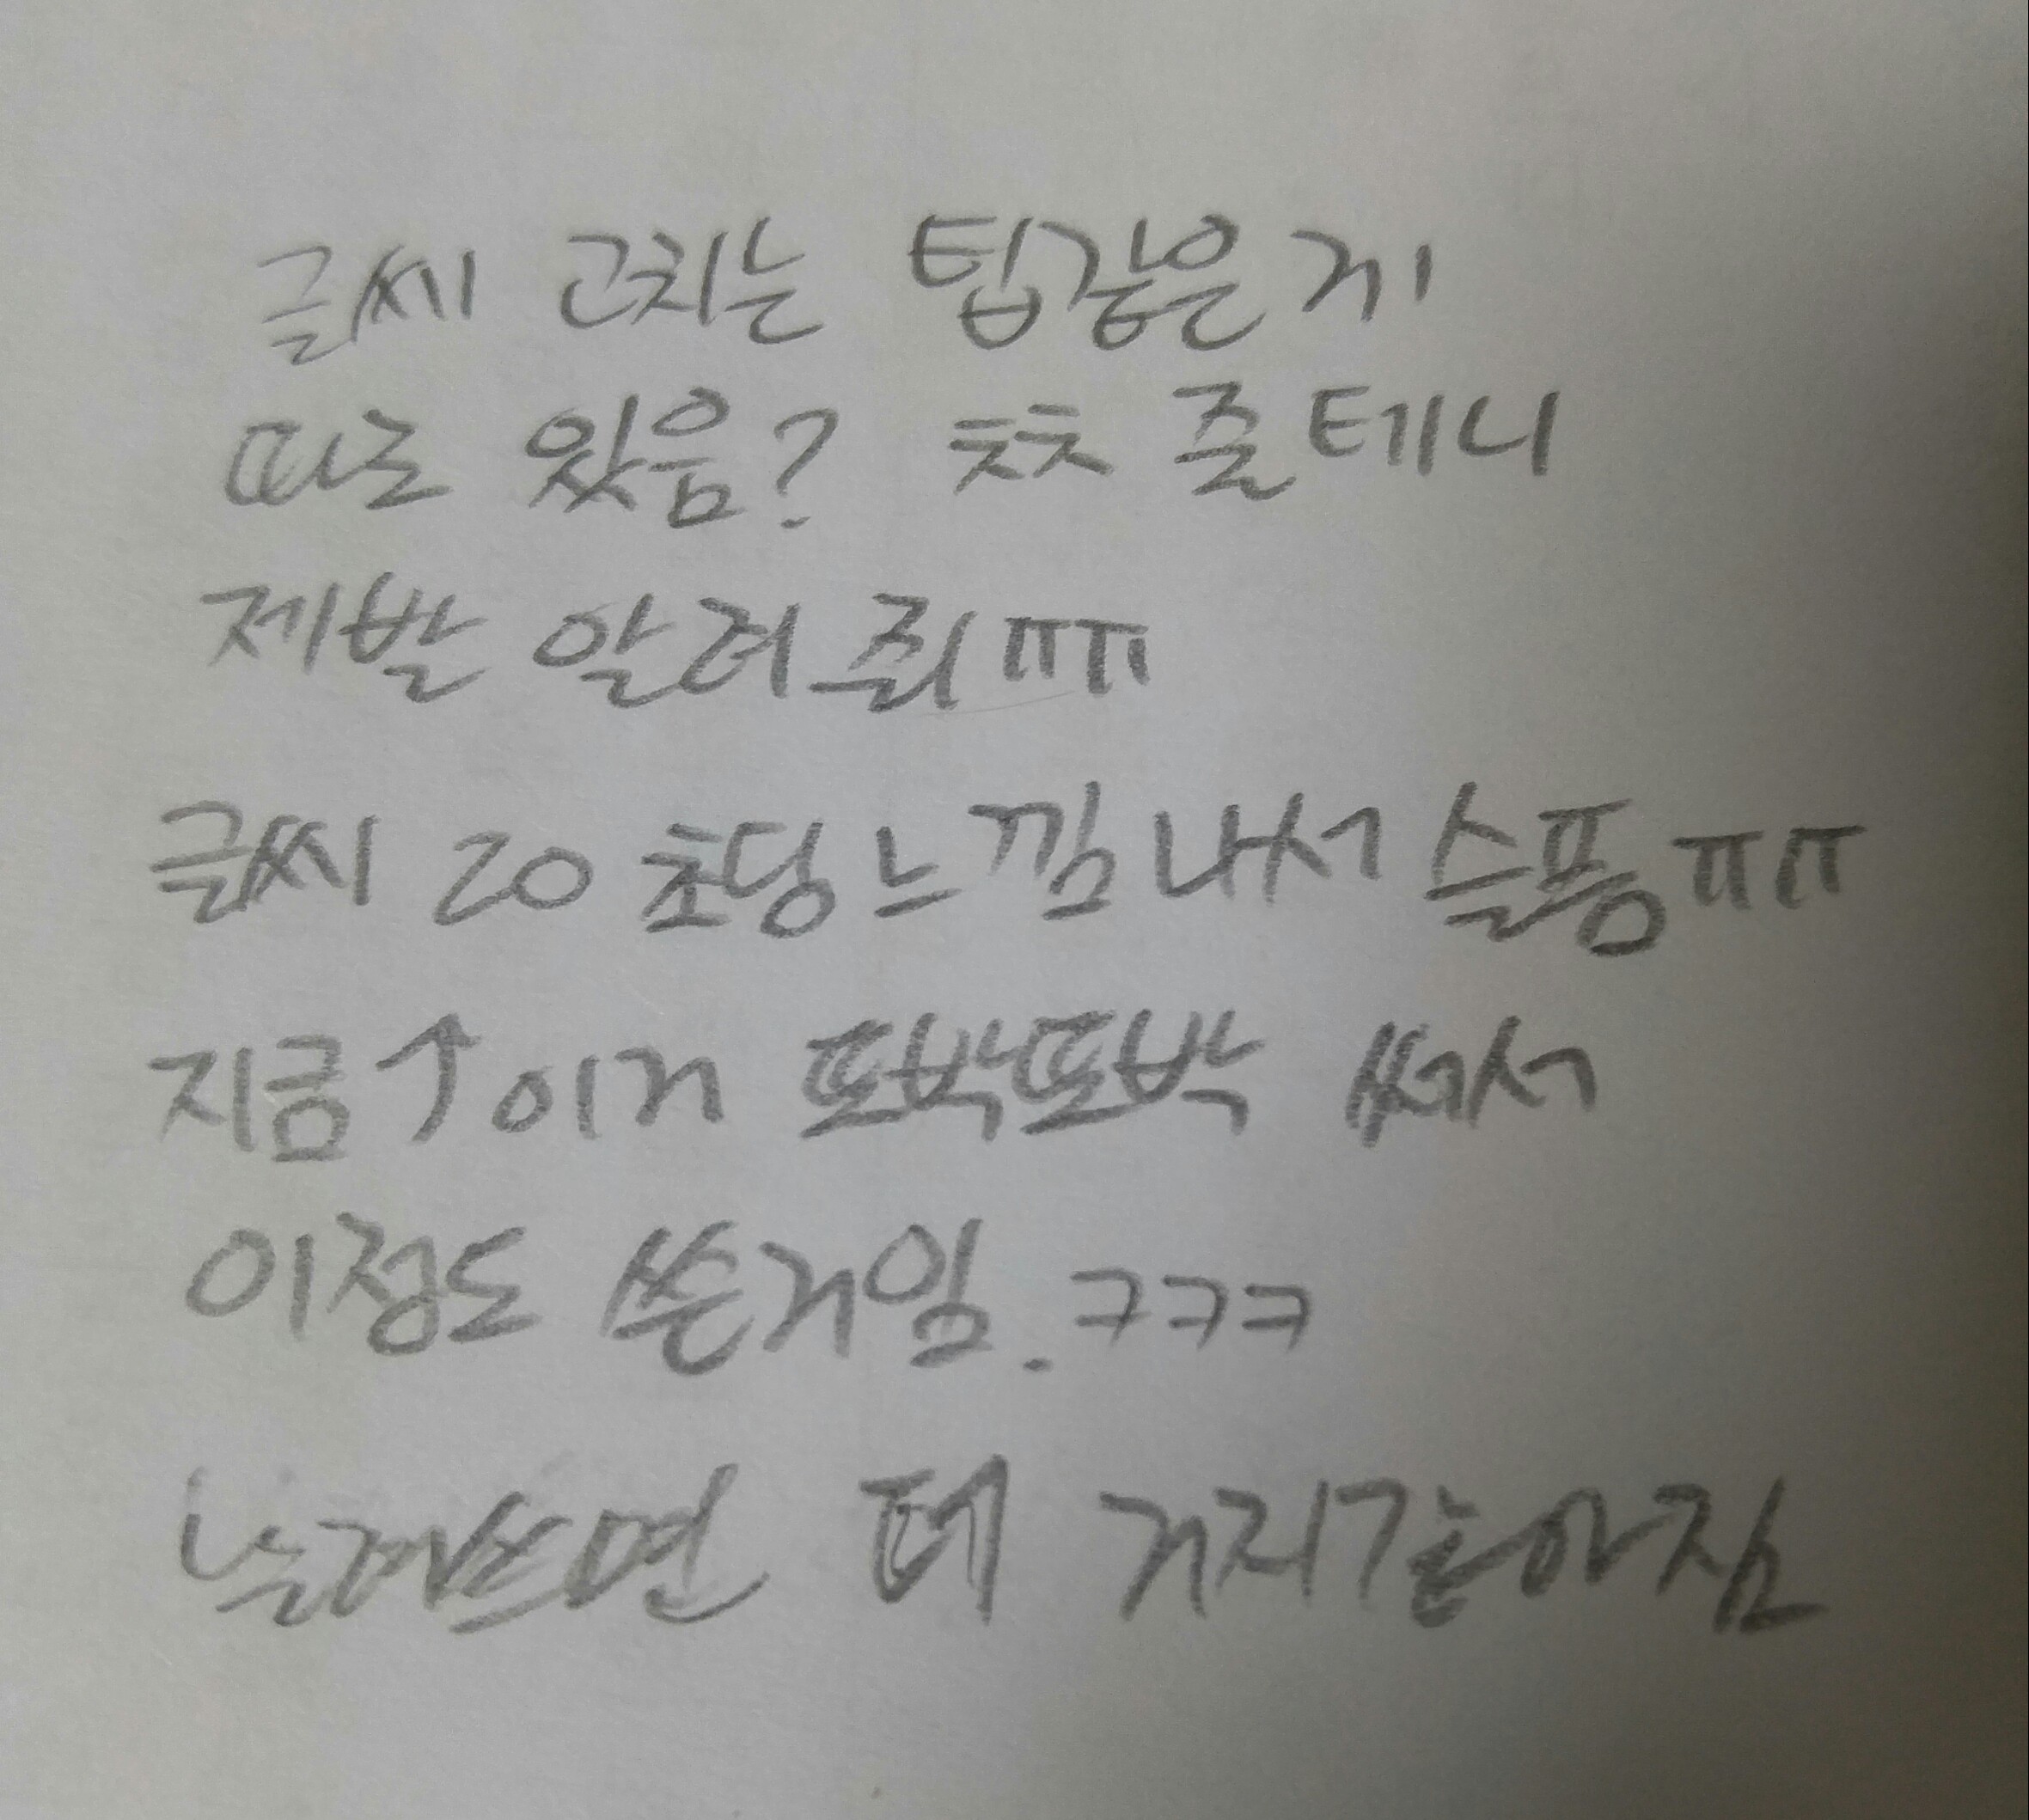 글씨 고치는 팁같은게
따로 있음? ㅊㅊ 줄테니
제발 알려줘ㅠㅠ
글씨 20초당 느낌 나서 슬픔ㅠㅠ
지금↑이거 또박또박 써서
이정도 쓴거임. ㅋㅋㅋ
날려쓰면 더 거지같아짐